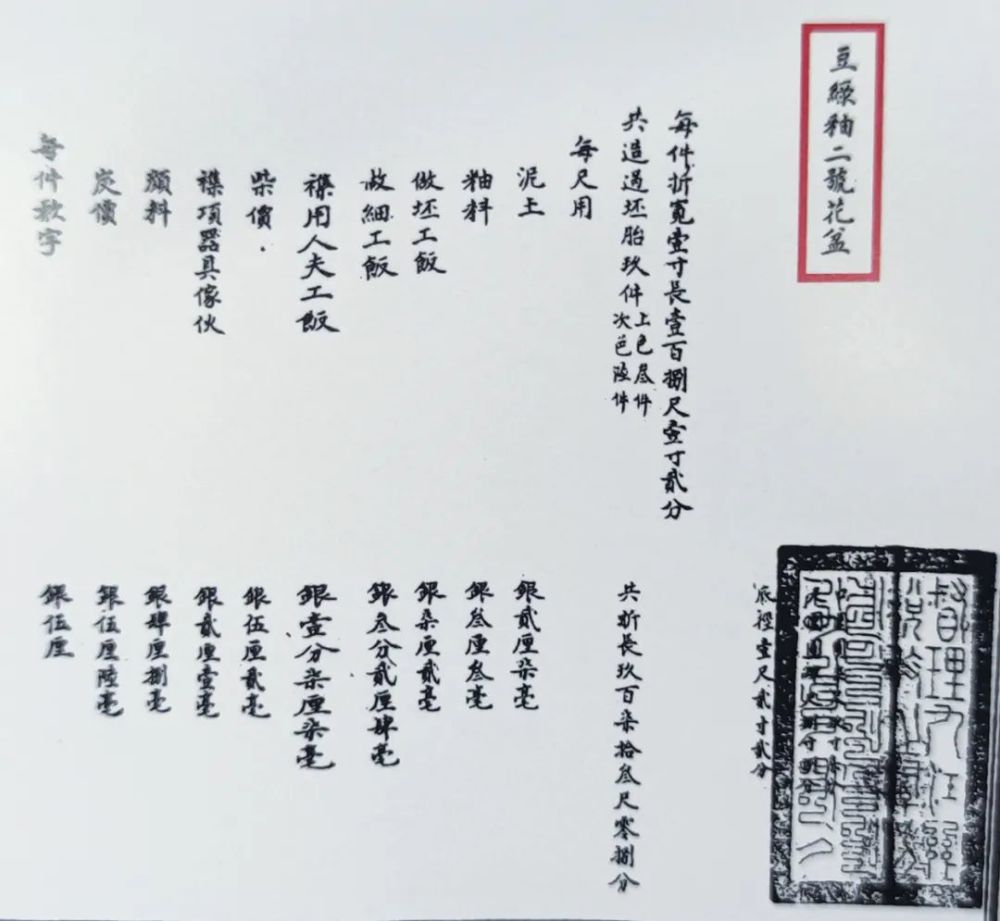 豆綠釉二號花盆
底徑壹尺貳寸貳分
每件折寬壹寸長壹百捌尺壹寸貳分
共造過坯胎玖件上色叄件次色陸件 共折長玖百柒拾叄尺零捌分
每尺用
泥土 銀貳厘柒毫
釉料 銀叄厘叄毫
做坯工飯 銀柒厘貳毫
做細工飯 銀叄分貳厘肆毫
襍用人夫工飯 銀壹分柒厘柒毫
柴價 銀伍厘貳毫
襍項器具傢伙 銀貳厘壹毫
顏料 銀肆厘捌毫
炭價 銀伍厘陸毫
每件欵字 銀伍厘